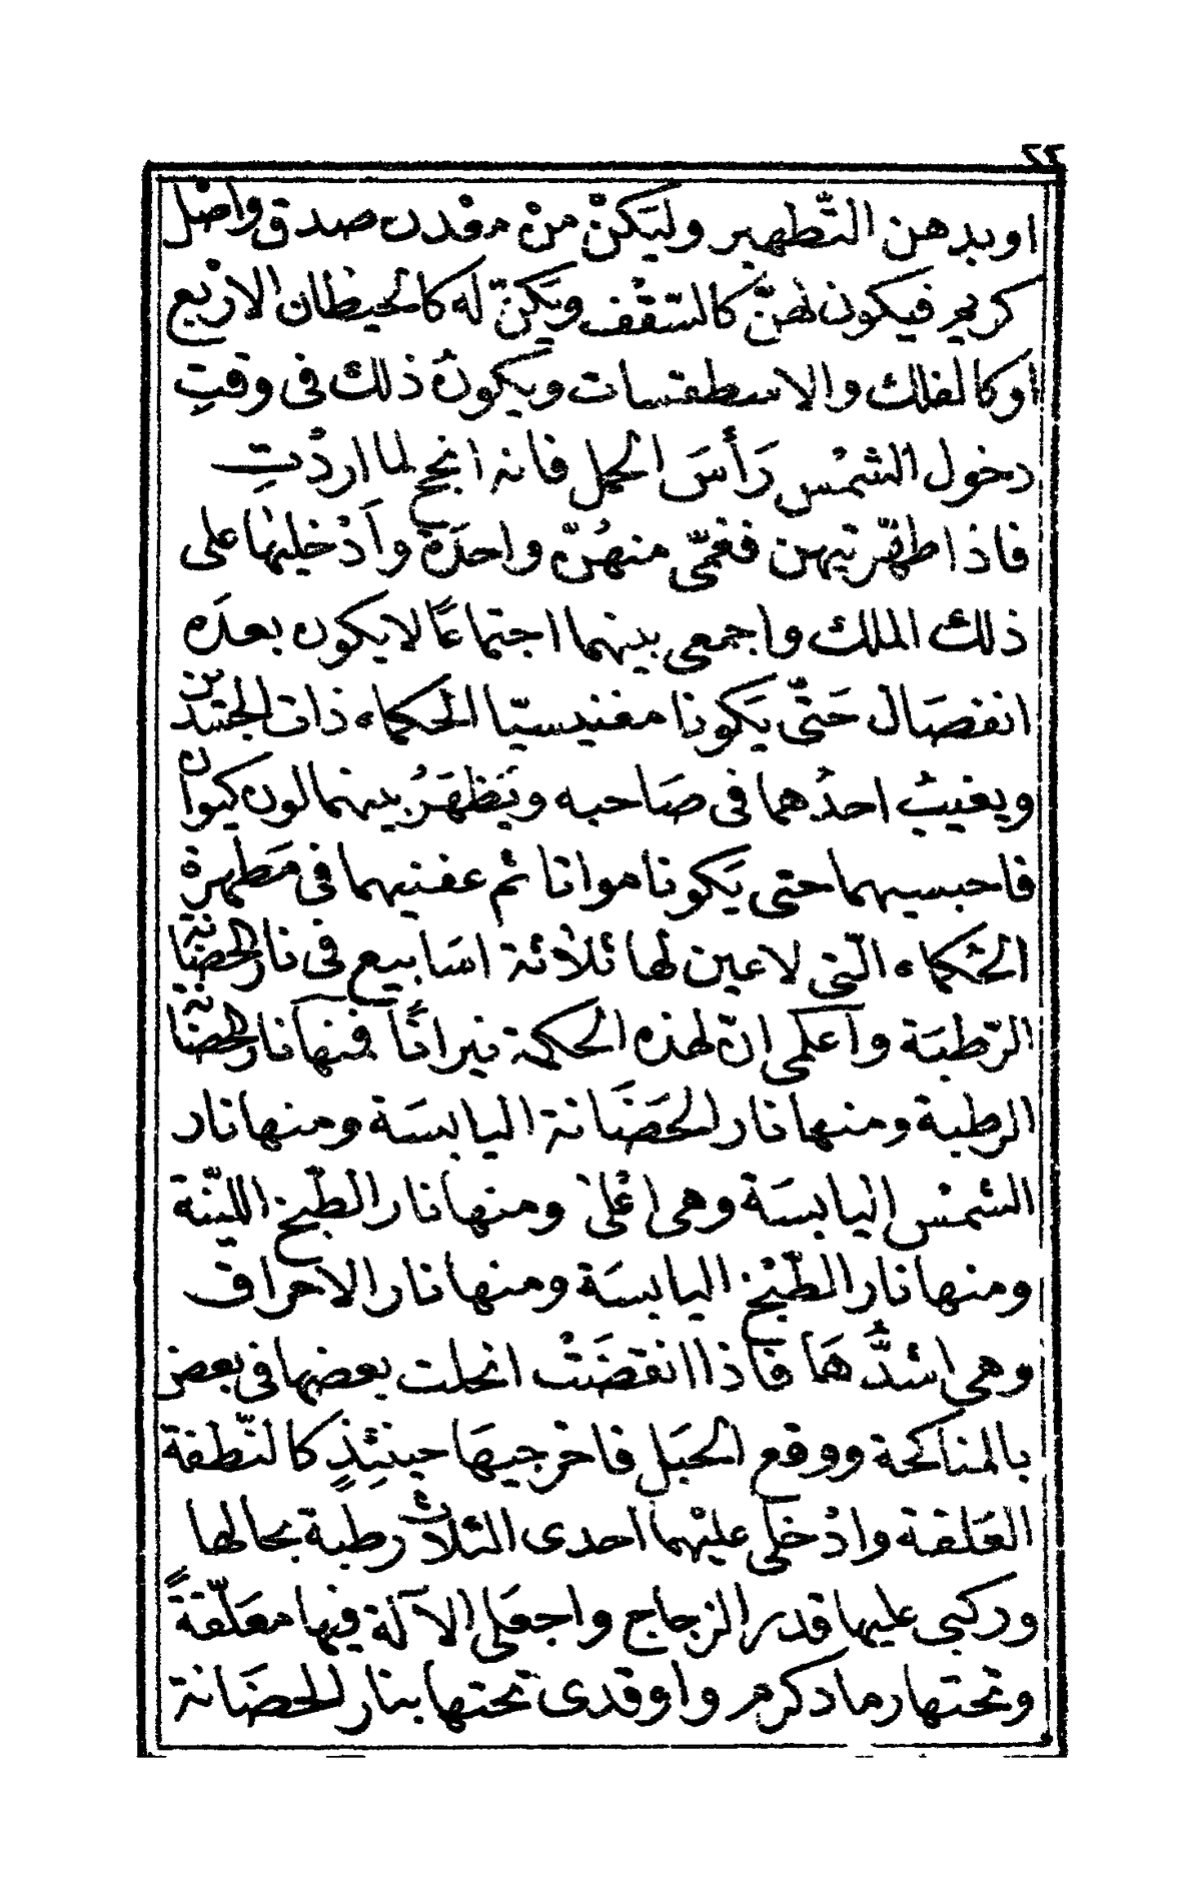 ٢٢
او بدهن التّطهير وليَكنْ منْ معْدن صدق واصْل
كريم فيكون لهنّ كالسّقْف ويَكنّ له كالحيطان الارْبع
اوكالفلك والاسطقسات ويكونُ ذلك فى وقتِ
دخول الشمْس رَأسَ الحمل فانه انجح لما اردْتِ
فاذا طهّرتيهن فغمّى منهُنّ واحدَة وآدْخليها على
ذلك الملك واجمعى بينهما اجتماعًا لايكون بعدَه
انفصَال حَتّى يَكونا مغنيسيّا الحكماء ذات الجسَدين
ويغيبُ احدُهما فى صَاحبه ويَظهَرُ بينهما لون كيوان
فاحبسيهما حتى يَكونا مواتا ثم عفنيهما فى مَطهرة
الحُكماء الّتى لاعين لها ثلاثة اسَابيع فى نار الحضانة
الرّطبَة وآعلمى انّ لهذه الحكمة نيرانًا فمنها نار الحضانة
الرطبة ومنها نار الحَضَانة اليابسَة ومنها نار
الشمْس اليابسَة وهى اعْلىٰ ومنها نار الطّبخ الليّنة
ومنها نار الطّبْخ اليابسَة ومنها نار الاحراق
وهى اشدُّهَا فاذا انقضَتْ انحلت بعضها فى بعض
بالمناكحة ووقع الحبَل فاخرجيهَا حينئِذٍ كالنّطفة
العَلقة وادْخلى عليْهما احدى الثلاث رطبة بحالها
وركبى عليها قدر الزجاج واجعَلى الآلة فيها معَلّقةً
وتحتها رماد كرم واوقدى تحتها بنار الحضَانة